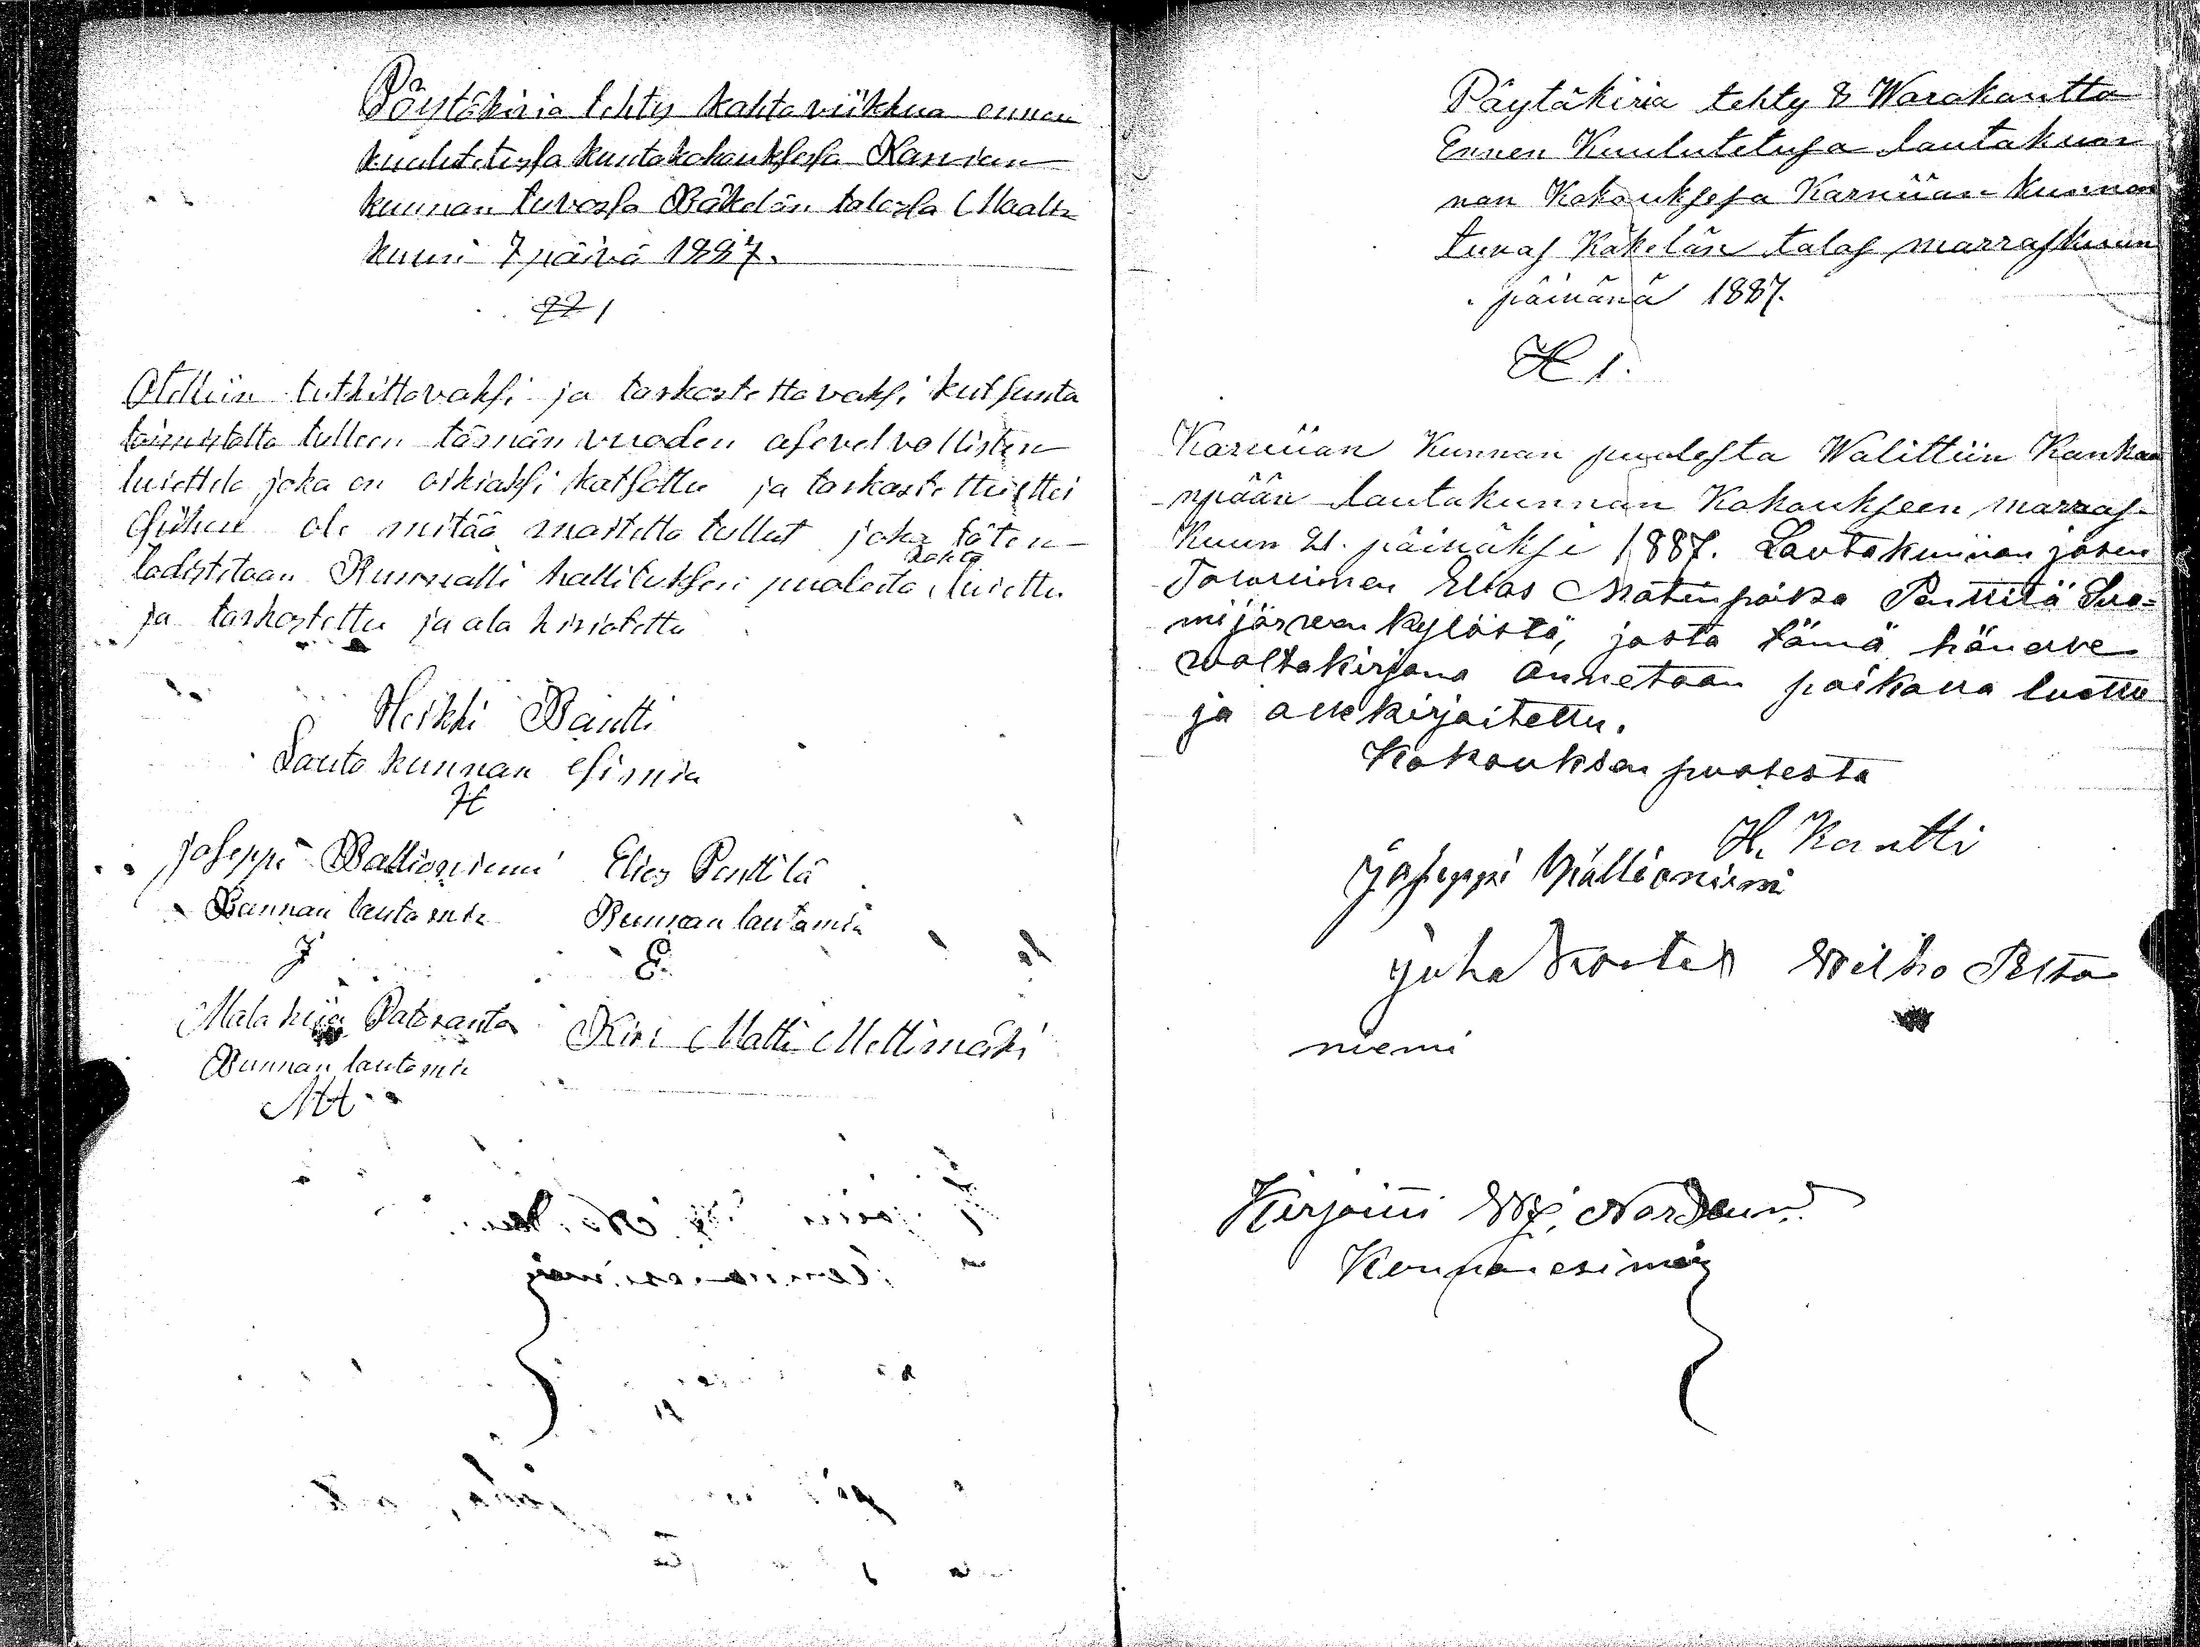 Pöytäkiria tehty kahta viikkua ennen
kuulutetussa kuntakokouksessa Karvian
kunnan tuvassa Käkelän talossa Maalis
kuun 7 päivä 1887.
§ 1
Otettiin tutkittavaksi ja tarkastettavaksi kutsunta
toimistolta tulleen tämän vuoden asevelvollisten
luettelo joka on oikiaksi katsottu ja tarkastettu ettei
siihen ole mitää muistutusta tullut joka täten
todistetaan Kunnalli hallituksen puolesta kohta luettu
ja tarkastettu ja ala kiriotettu
Heikki Kantti
Lautakunnan Esimis
H
Joseppi Kallioniemi Elies Penttilä
Kunnan lautamis Kunnan lautamis
J E.
Malakiia Patoranta Kiri Matti Mettimäki
Kunnan lautamis
MH
Päytäkiria tehty 8 Warokautta
Ennen Kuulutetusa lautakun
nan Kokouksesa Karviian kunnan
tuvas Käkelän talos marraskuun
päivänä 1887.
§ 1.
Karviian Kunnan puolesta Walittiin Kankaa
npään lautakunnan Kokoukseen marras-
Kuun 21. päiväksi 1887. Lautakunnan jäsen
Talollinen Elias Matinpoika Penttilä Suo=
mijärven kylästä, josta tämä hänelle
waltakirjana annetaan paikalla luettu
ja allekirjoitettu.
Kokouksen puolesta
H. Kantti
Joseppi Kallioniemi
Juha Wilho Pelto
niemi
Kirjoitti Nordlund.
Kunnanesimies